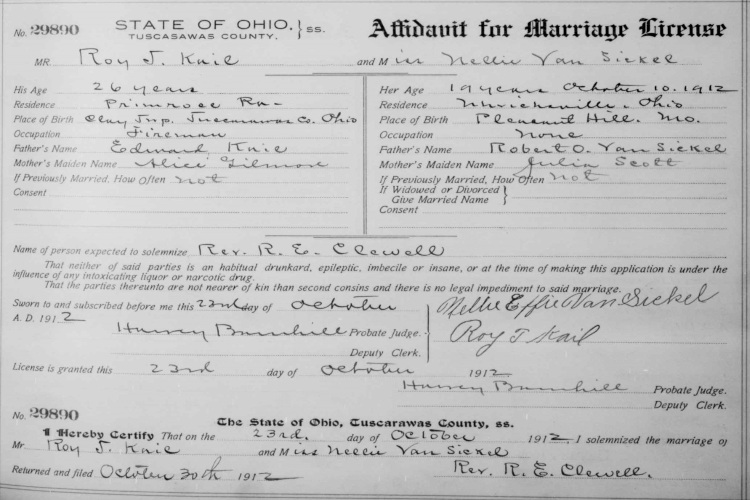 No. 29890 STATE OF OHIO, } ss. Affidavit for Marriage License
TUSCASAWAS COUNTY,
MR Roy T. Kail and Miss Nellie Van Sickel
His Age 26 years Her Age 19 years October 10. 1912
Residence Primrose Residence Uhrichsville, Ohio
Place of Birth Clay Twp. Tuscarawas Co. Ohio Place of Birth Pleasant Hill. Mo.
Occupation Fireman Occupation None
Father's Name Edward Kail Father's Name Robert O. Van Sickel
Mother's Maiden Name Alice Gilmore Mother's Maiden Name Julia Scott
If Previously Married, How Often not If Previously Married, How Often not
Consent If Widowed or Divorced }
Give Married Name
Consent
Name of person expected to solemnize Rev. R. E. Clewell
That neither of said parties is an habitual drunkard, epileptic, imbecile or insane, or at the time of making this application is under the
influence of any intoxicating liquor or narcotic drug.
That the parties thereunto are not nearer of kin than second consins and there is no legal impediment to said marriage.
Sworn to and subscribed before me this 23rd day of October Nellie Effie Van Sickel
A. D. 1912
Harvey Barnhill Probate Judge. Roy T Kail
Deputy Clerk.
License is granted this 23rd day of October 1912
Harvey Barnhill Probate Judge.
Deputy Clerk.
No. 29890 The State of Ohio, Tuscarawas County, ss.
I Hereby Certify That on the 23rd. day of October 1912, I solemnized the marriage of
Mr Roy T. Kail and Miss Nellie Van Sickel
Returned and filed October 30th 1912 Rev. R. E. Clewell.